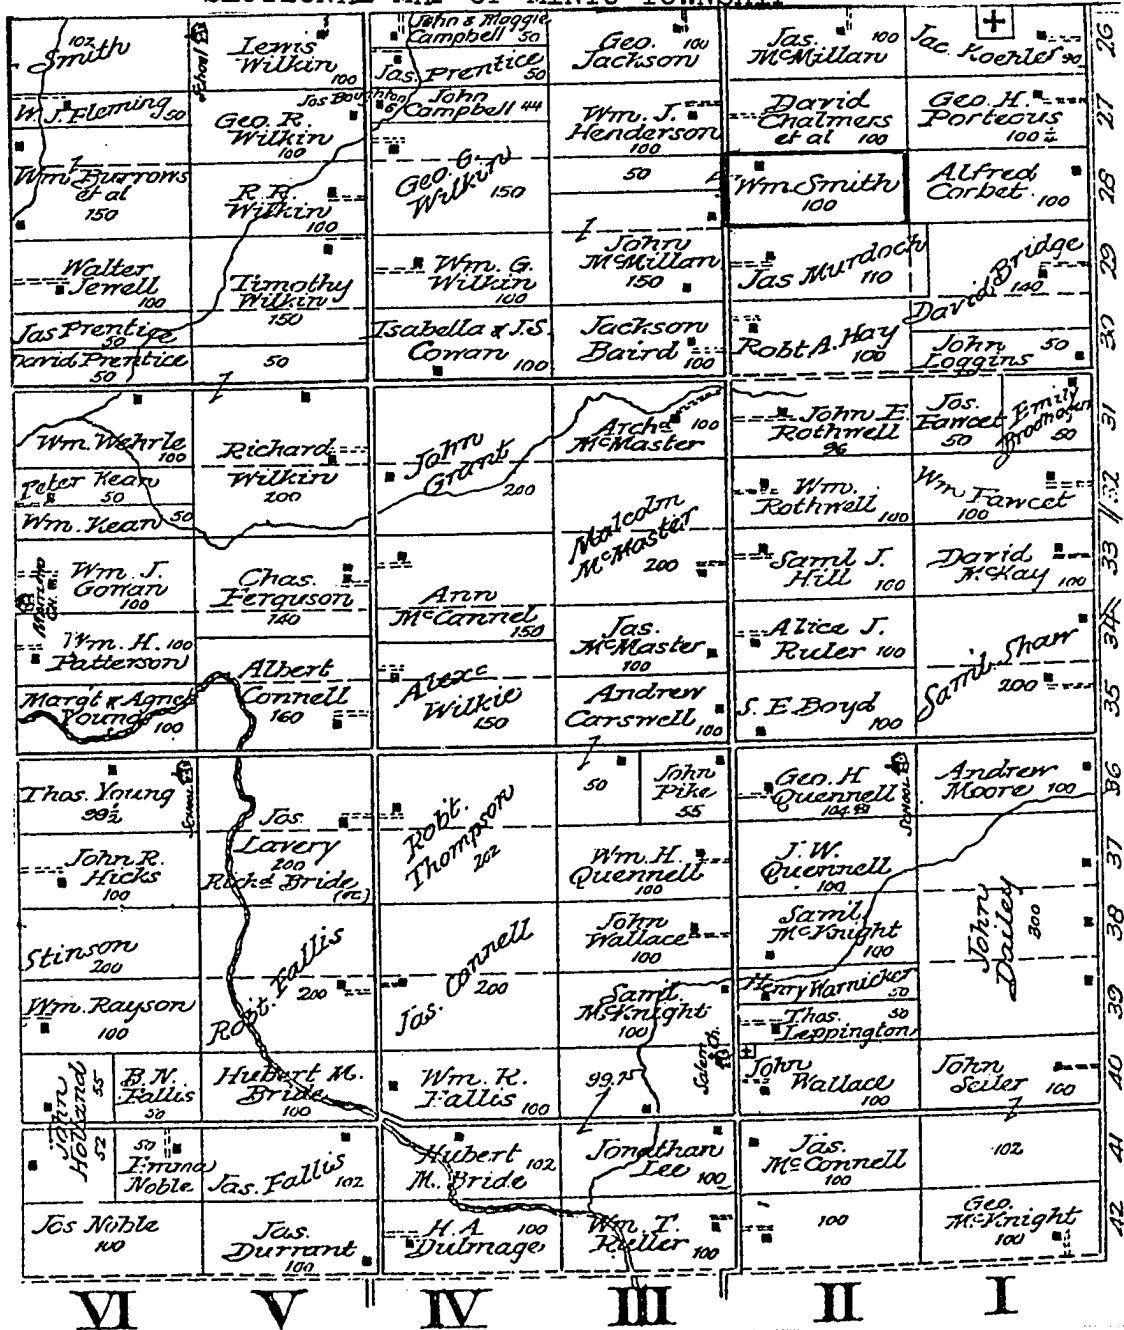 SECTIONAL MAP OF MINTO TOWNSHIP
Smith
102
School
Lewis
Wilkin
100
John & Maggie
Campbell 50
Jas. Prentice
50
Geo. 100
Jackson
Jas. 100
McMillan
Jac. Koehler 90
26
W. J. Fleming 50
Geo. R.
Wilkin
100
John
Campbell 44
Wm. J.
Henderson
100
David
Chalmers
et al 100
Geo. H.
Porteous
100½
27
Wm. Burrows
et al
150
R. R.
Wilkin
100
Geo. G.
Wilkin
150
50
Wm. Smith
100
Alfred
Corbet
100
28
Walter
Jewell
100
Timothy
Wilkin
150
Wm. G.
Wilkin
100
John
McMillan
150
Jas Murdoch
110
David Bridge
140
29
Jas Prentice
50
David Prentice
50
50
Isabella & J.S.
Cowan 100
Jackson
Baird
100
Robt A. Hay
100
John 50
Loggins
30
Wm. Wehrle
100
Richard
Wilkin
200
John
Grant
200
Archd 100
McMaster
John E.
Rothwell
96
Jos.
Fawcet
50
Emily
50
31
Peter Kean
50
Wm. Kean 50
Malcolm
McMaster
200
Wm.
Rothwell 100
Wm Fawcet
100
32
Wm. J.
Gowan
100
Chas.
Ferguson
140
Ann
McCannel
150
Saml J.
Hill 100
David
McKay 100
33
Wm. H. 100
Patterson
Jas.
McMaster
100
Alice J.
Ruler 100
Saml. Shaw
200
34
Margt & Agnes
Young
100
Albert
Connell
160
Alexc
Wilkie
150
Andrew
Carswell 100
S. E. Boyd
100
35
Thos. Young
99½
School
Jos.
Lavery
200
Richd Bride
Robt.
Thompson
202
50
John
Pike
55
Geo. H
Quennell
School
Andrew
Moore 100
36
John R.
Hicks
100
Wm. H.
Quennell
100
J. W.
Quennell
100
John
Dailey
300
37
Stinson
200
Robt. Fallis
200
Jas. Connell
200
John
Wallace
100
Saml.
McKnight
100
38
Wm. Rayson
100
Saml.
McKnight
100
Henry Warnicker
50
Thos. 50
Leppington
39
John
Holland
55
52
B. N.
Fallis
50
Hubert M.
Bride
100
Wm. K.
Fallis 100
99.75
Salem Ch.
John
Wallace
100
John
Seiler 100
40
50
Emma
Noble
Jas. Fallis 102
Hubert 102
M. Bride
Jonathan
Lee 100
Jas.
McConnell
100
102
41
Jos Noble
100
Jas.
Durrant
100
H. A. 100
Dulmage
Wm. T.
Kieller 100
100
Geo.
McKnight
100
42
VI V IV III II I